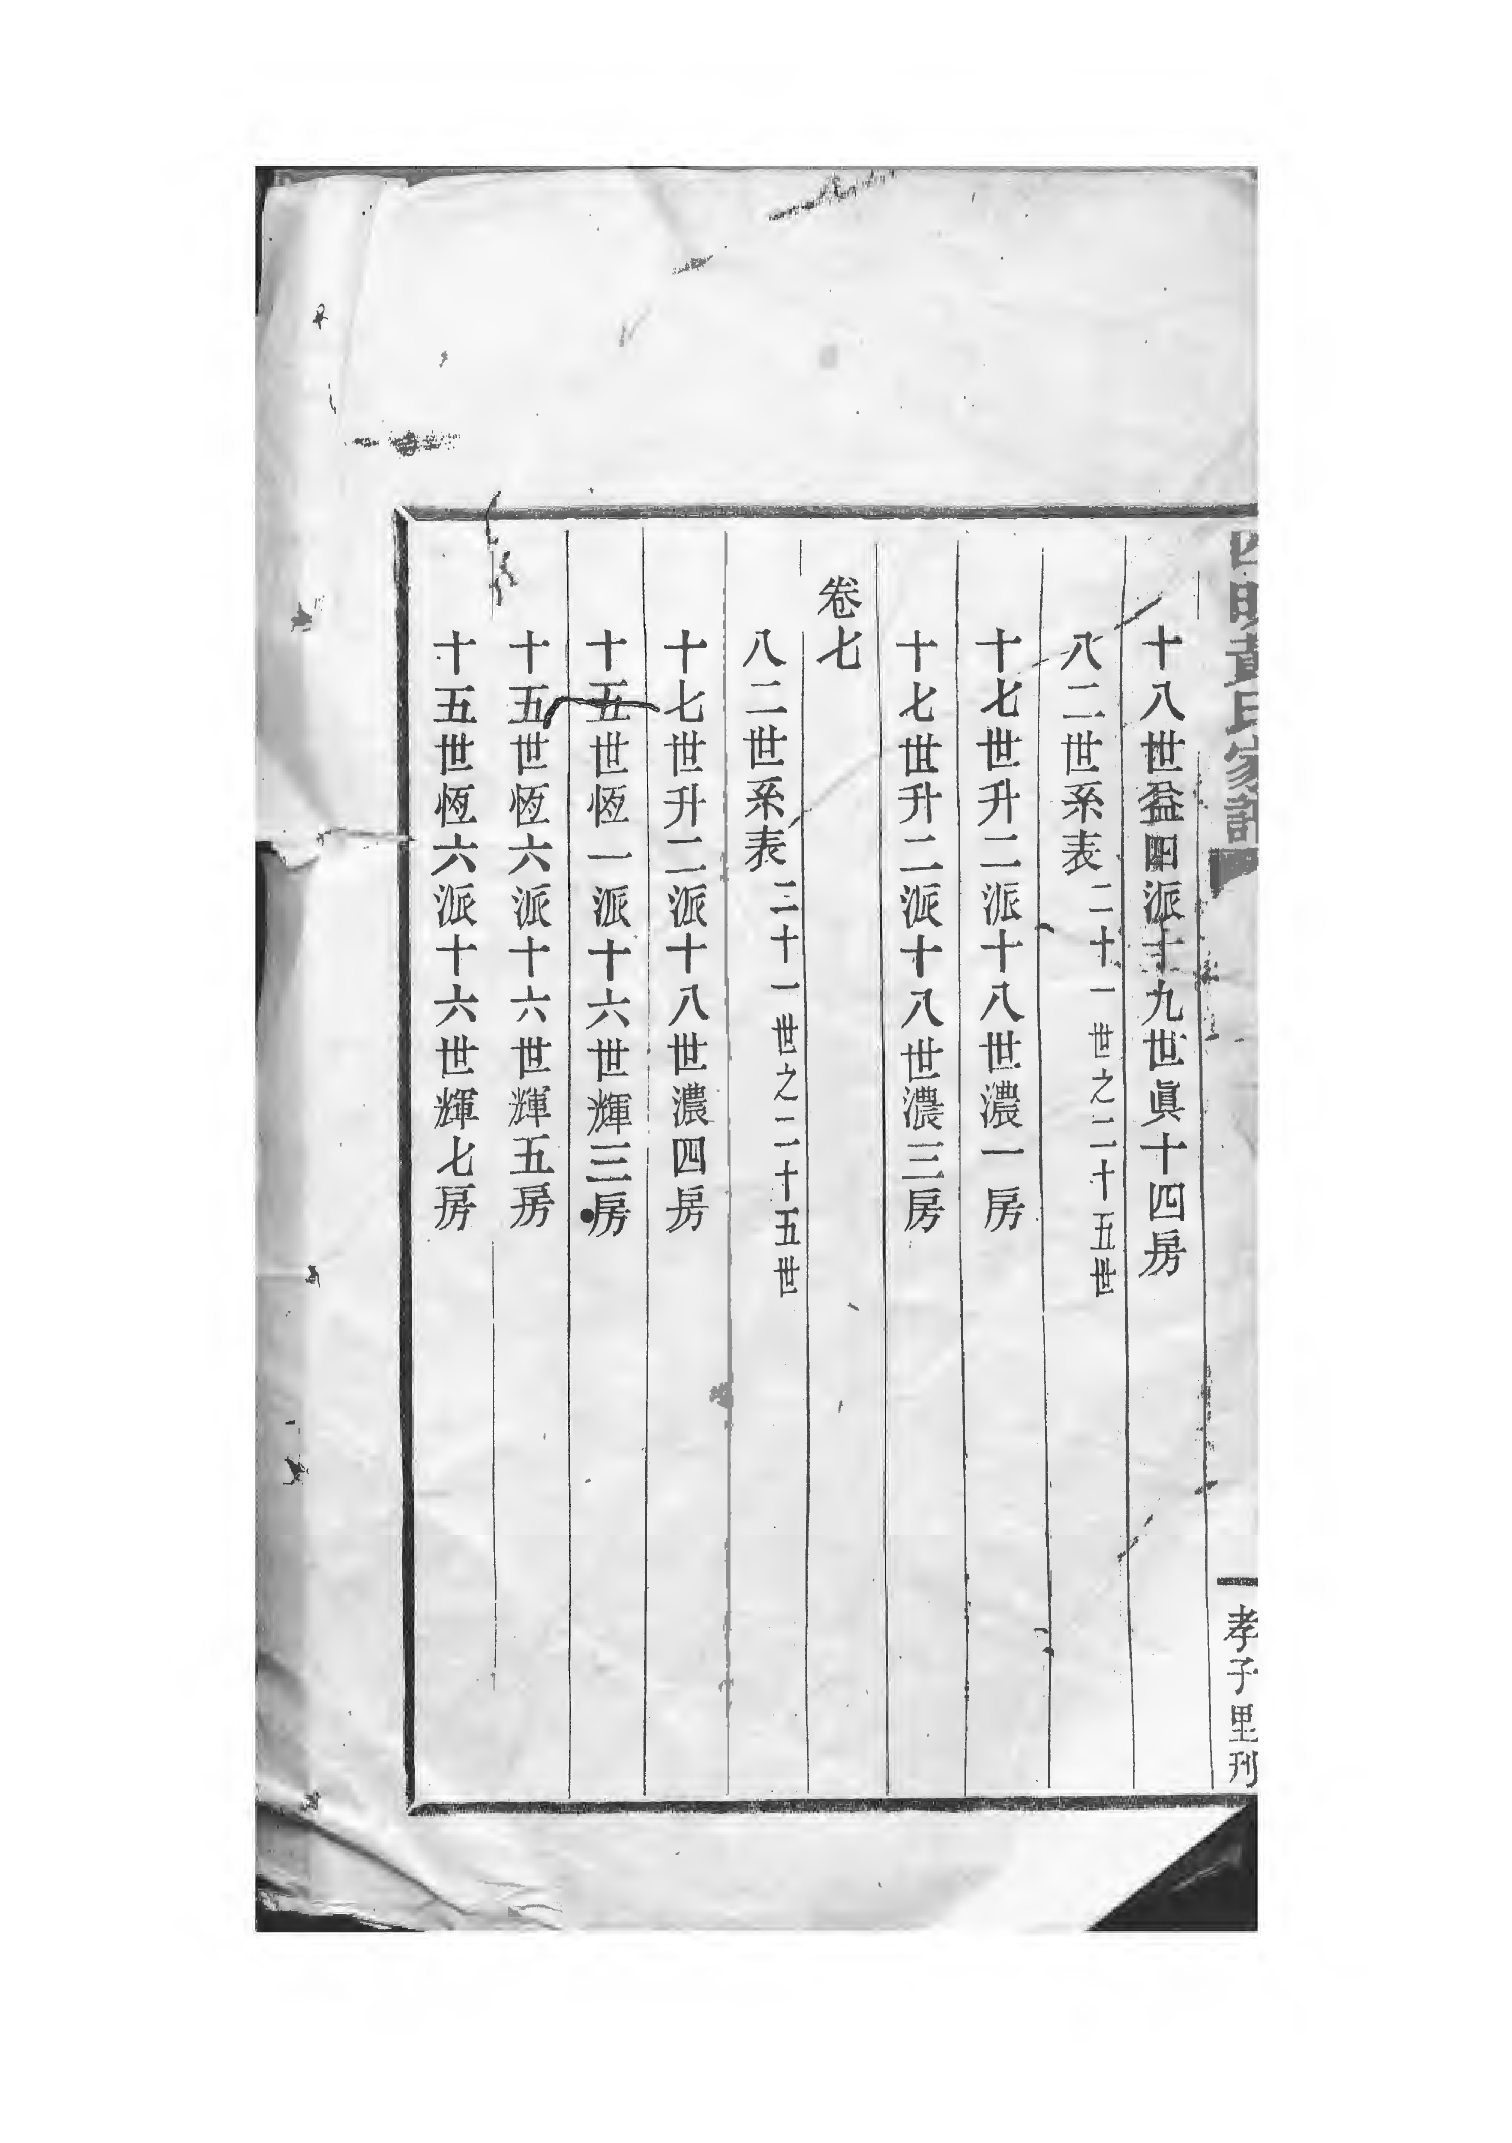 四明黃氏家譜
一
孝子里刊
十八世益四派十九世眞十四房
八二世系表 二十一世之二十五世
十七世升二派十八世濃一房
十七世升二派十八世濃三房
卷七
八二世系表 二十一世之二十五世
十七世升二派十八世濃四房
十五世恆一派十六世輝三房
十五世恆六派十六世輝五房
十五世恆六派十六世輝七房